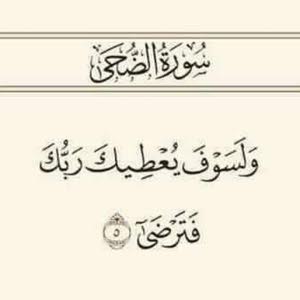 سُورَةُ الضُّحَى
وَلَسَوْفَ يُعْطِيكَ رَبُّكَ
فَتَرْضَىٰٓ ٥